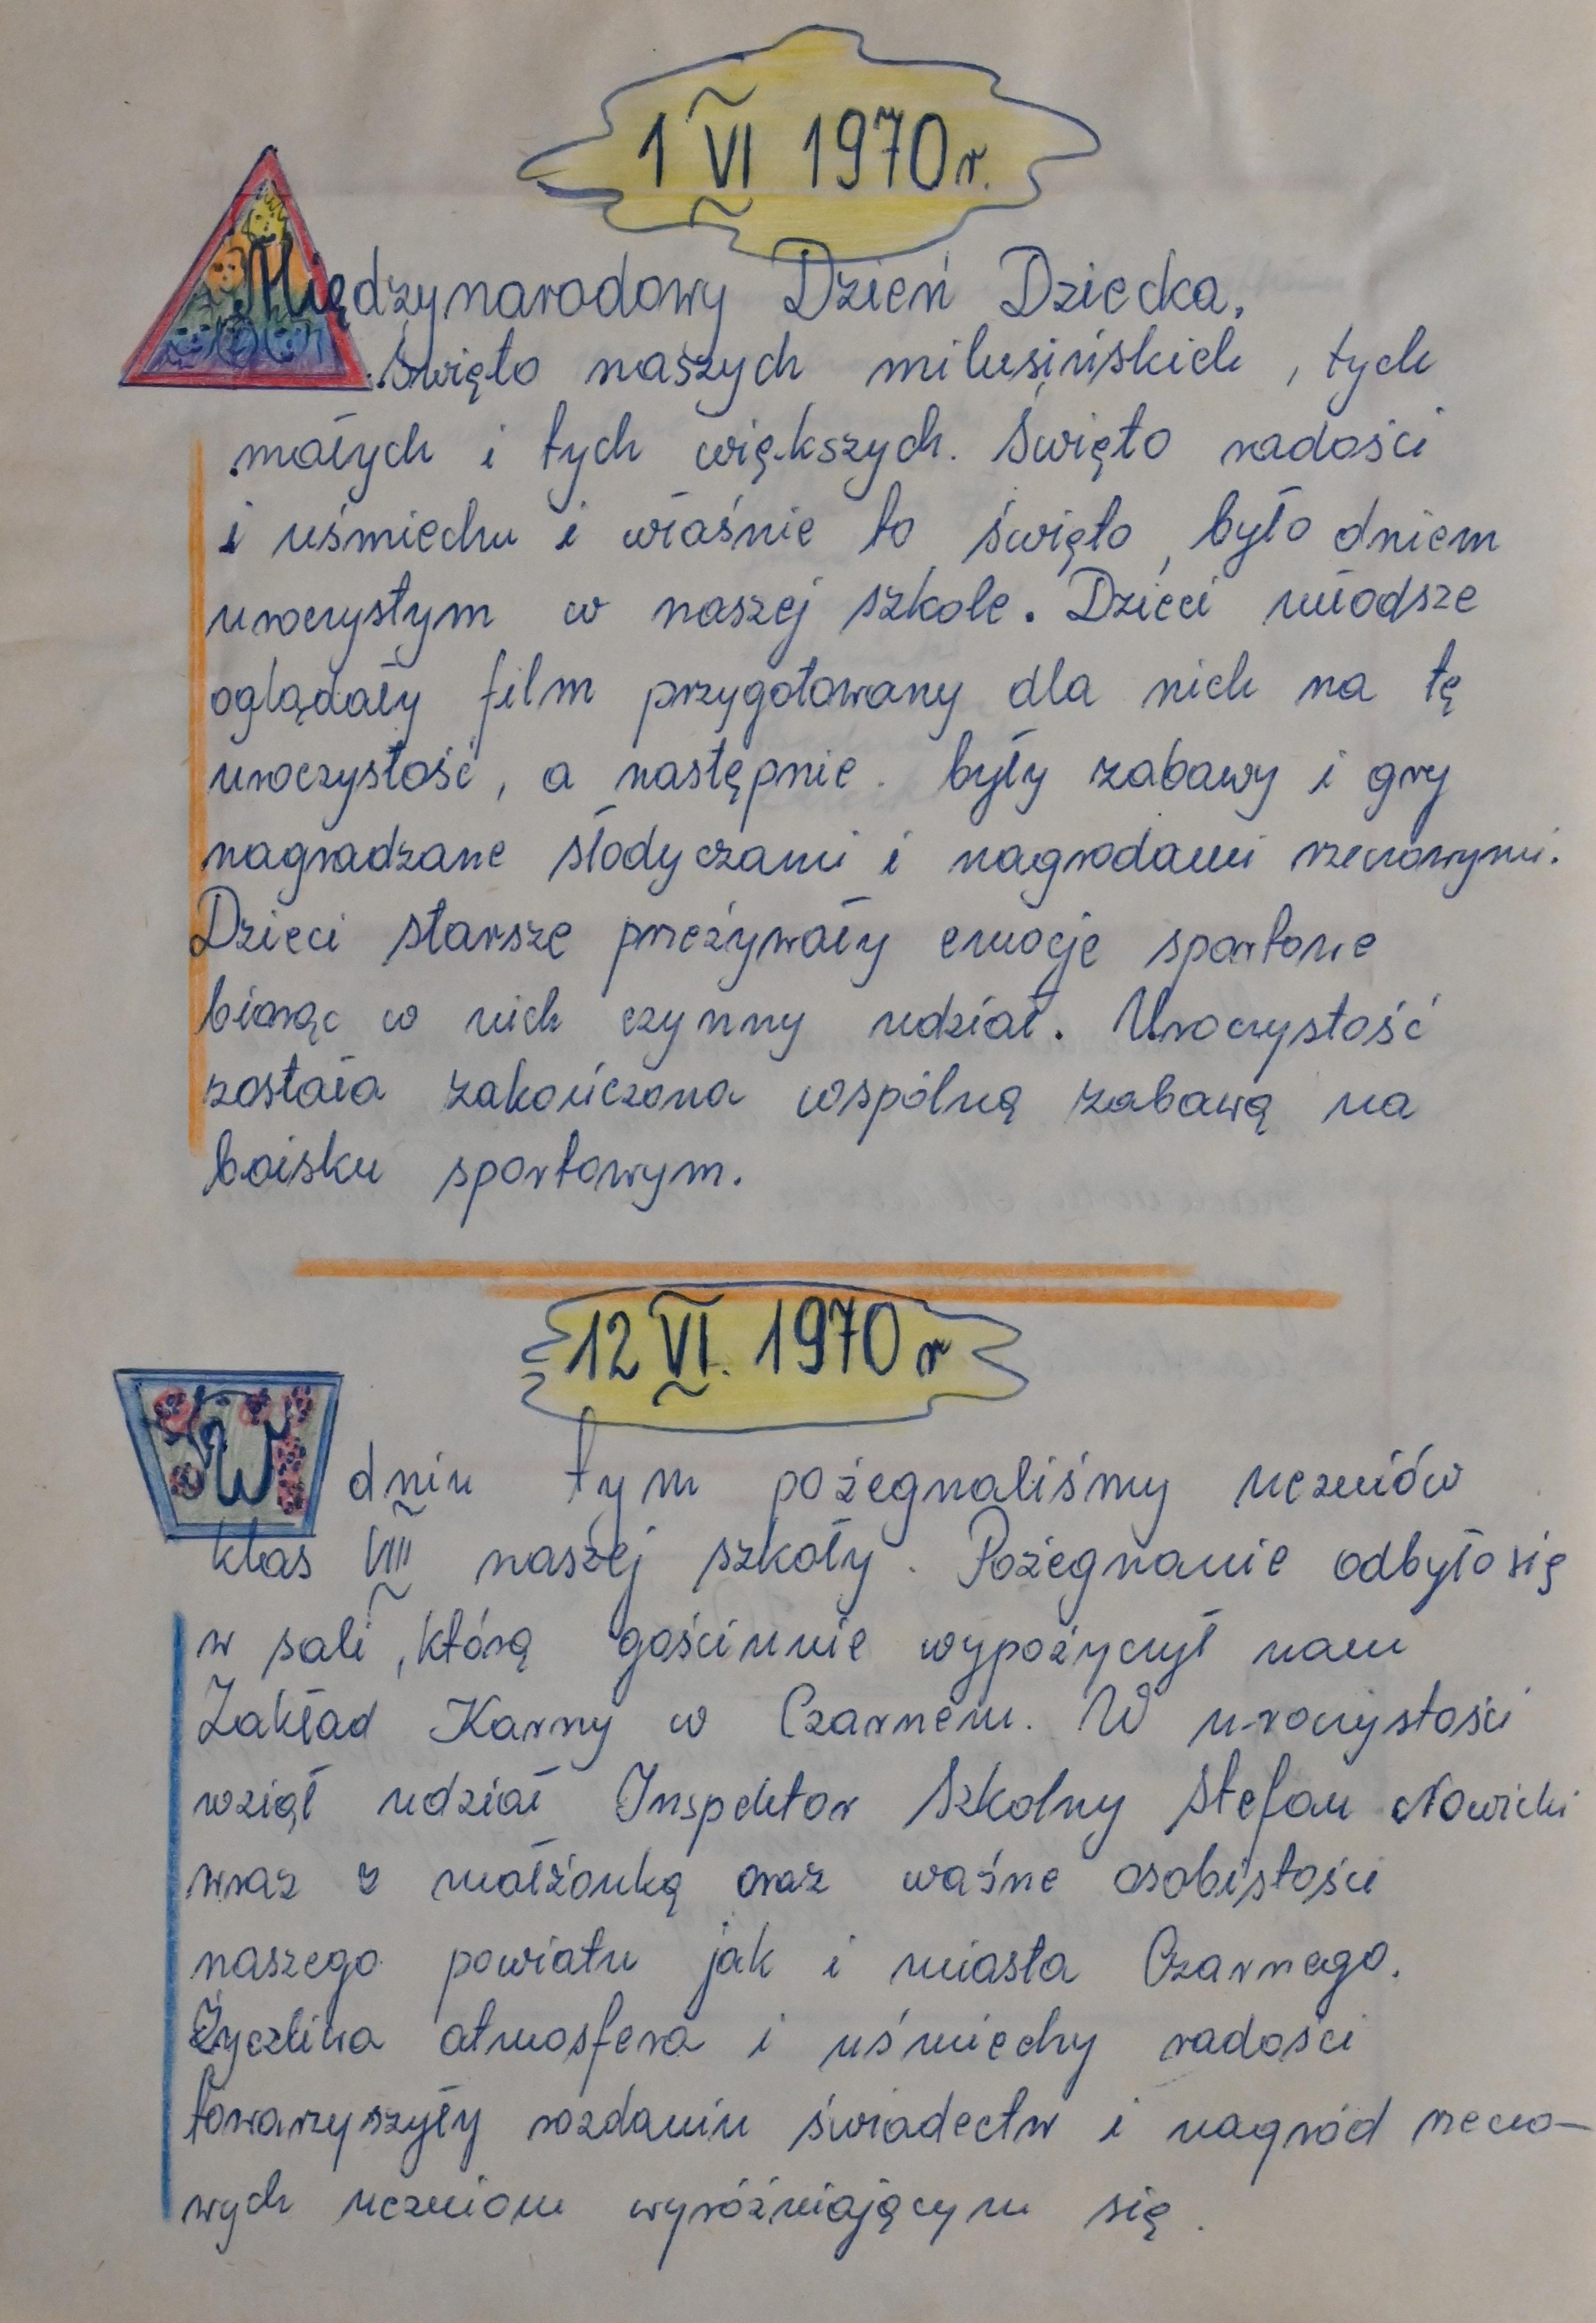 1 VI 1970 r.
Międzynarodowy Dzień Dziecka.
Święto naszych milusińskich, tych
małych i tych większych. Święto radości
i uśmiechu i właśnie to święto, było dniem
uroczystym w naszej szkole. Dzieci młodsze
oglądały film przygotowany dla nich na tę
uroczystość, a następnie były zabawy i gry
nagradzane słodyczami i nagrodami rzeczowymi.
Dzieci starsze przeżywały emocje sportowe
biorąc w nich czynny udział. Uroczystość
została zakończona wspólną zabawą na
boisku sportowym.
12 VI. 1970 r
W dniu tym pożegnaliśmy uczniów
klas VIII naszej szkoły. Pożegnanie odbyło się
w sali, którą gościnnie wypożyczył nam
Zakład Karny w Czarnem. W uroczystości
wziął udział Inspektor Szkolny Stefan Nowicki
wraz z małżonką oraz ważne osobistości
naszego powiatu jak i miasta Czarnego.
Życzliwa atmosfera i uśmiechy radości
towarzyszyły rozdaniu świadectw i nagród rzeczo-
wych uczniom wyróżniającym się.